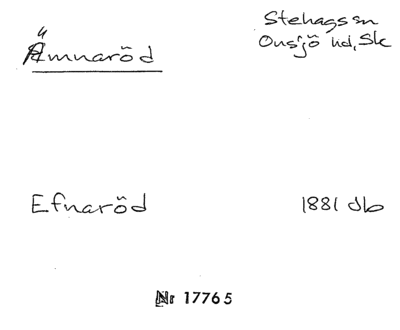 Ämnaröd
Stehags sn
Onsjö hd, Sk
Efnaröd
1881 db
Nr 17765